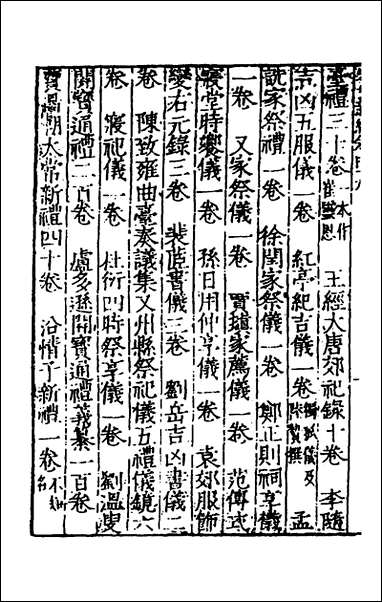 禮三十卷一本作崔靈恩　王經大唐郊祀錄十卷　李隨
吉凶五服儀一卷　紅亭紀吉儀一卷獨孤儀及陸贄撰　孟
詵家祭禮一卷　徐閏家祭儀一卷　鄭正則祠享儀
一卷　又家祭儀一卷　賈頊家薦儀一卷　范傳式
寢堂時饗儀一卷　孫日用仲享儀一卷　袁郊服飾
變右元錄三卷　裴茝書儀三卷　劉岳吉凶書儀二
卷　陳致雍曲臺奏議集又州縣祭祀儀五禮儀鏡六
卷　寢祀儀一卷　杜衍四時祭享儀一卷　劉溫叟
開寶通禮二百卷　盧多遜開寶通禮義纂一百卷
賈昌朝太常新禮四十卷　沿情子新禮一卷不知名